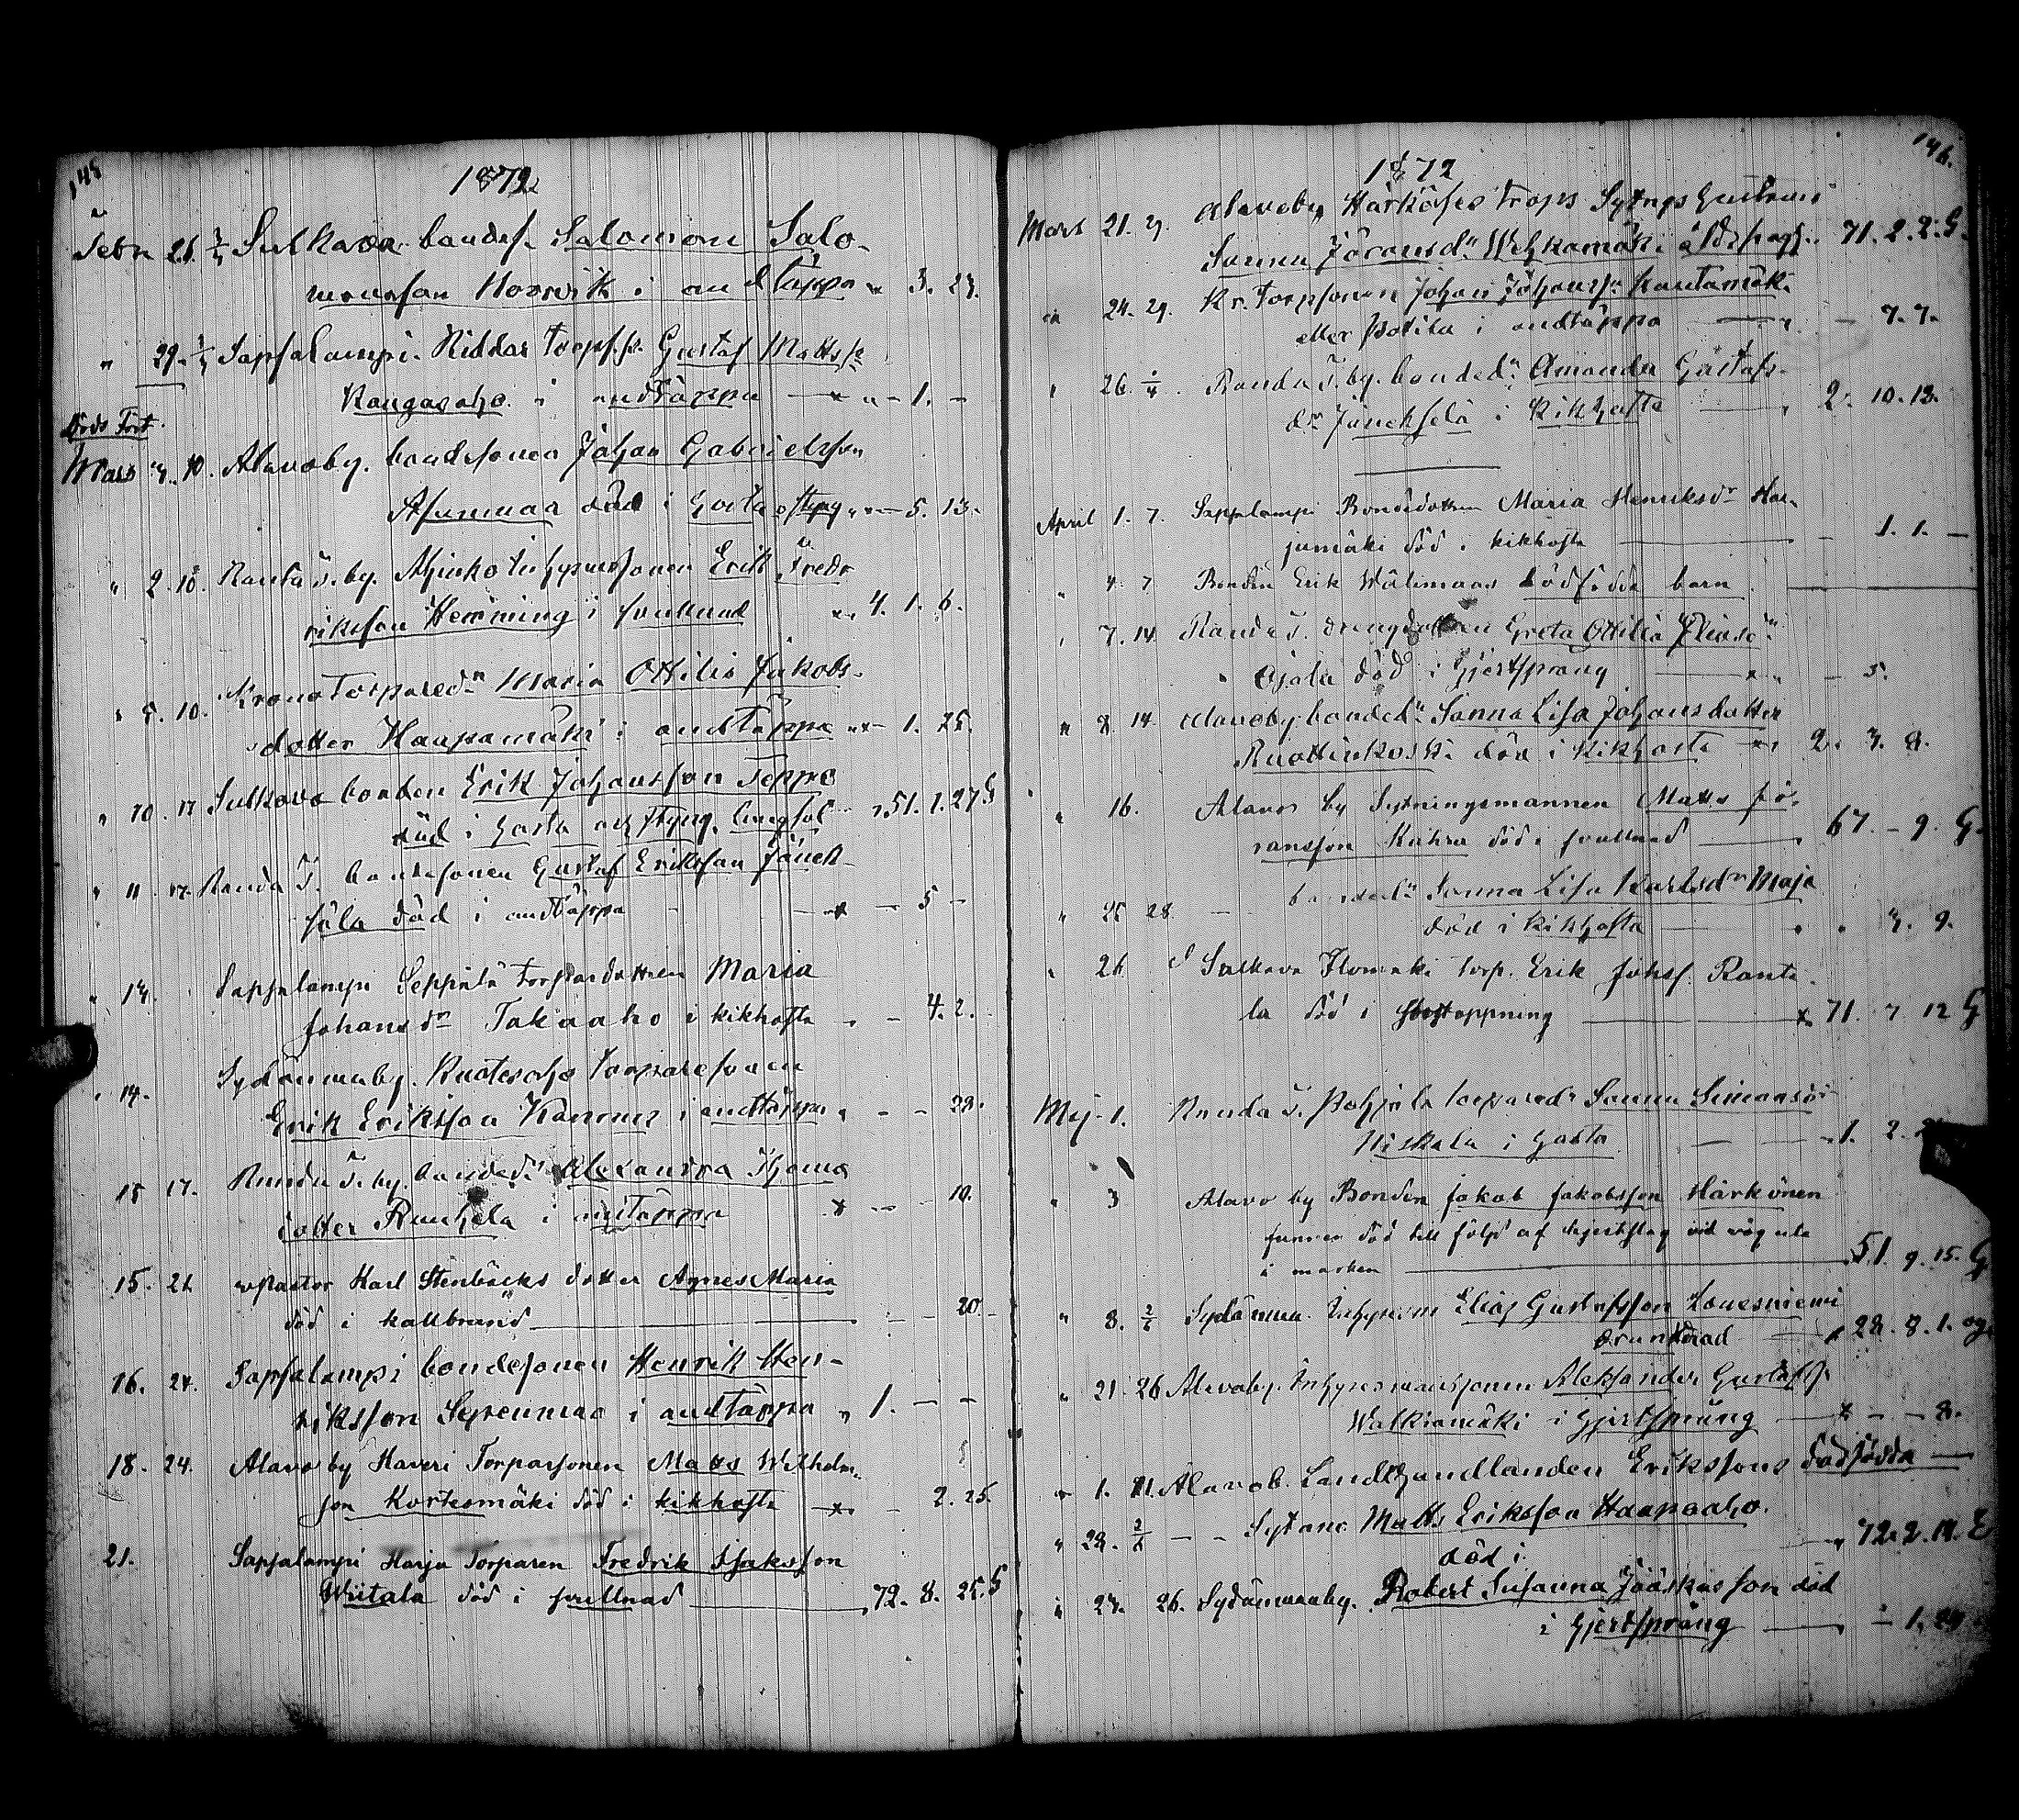 145
1872
Febr 21. 3/4 Sulkava bondes. Salomon Salo-
monsson Norrvik i andtäppa " 3. 23.
" 29. 3/4 Sapsalampi. Riddar torps.s. Gustaf Matts sn
Kangasaho. i andtäppa — " — 1. —
Död Fört.
Mars 3. 10. Alavoby. bondesonen Johan Gabrielsson
Asunmaa död i hosta o styng " — 5. 13.
" 2. 10. Ranta T. by. inhysessonen Erik Fred-
riksson Hemming i svullnad " 4. 1. 6.
" 5. 10. Krono Torparedn Maria Ottilia Jakobs-
dotter Haapamäki i andtäppa — 1. 25.
" 10. 17 Sulkava bonden Erik Johansson Teppo
död i hosta och styng, lungsot " 51. 1. 27 G
" 11. 17. Randa T. bondesonen Gustaf Eriksson Jänek-
sälä död i andtäppa — — 5 —
" 13. Sapsalampi Seppälä Torpardottren Maria
Johansdn Takaaho i kikhosta " — 4. 2.
" 14. Sydänmaby. Ruotesaho torparesonen
Erik Eriksson Kammar i andtäppa " — — 28.
15 17. Randa T. by. bonded. Alexandra Thoma
dotter Rauhala i andtäppa — — 10.
15. 21 v Pastor Karl Stenbäcks dotter Agnes Maria
död i kallbrand — — 20 —
16. 24. Sapsalampi bondesonen Henrik Hen-
riksson Sepänmaa i andtäppa " 1. — —
18. 24. Alavo by Haveri Torparsonen Matts Wilhelm-
son Kortesmäki död i kikhosta — 2. 25.
21. Sapsalampi Harju Torparen Fredrik Isaksson
Wiitala död i svullnad — 72. 8. 25. G
146.
1872
Mars 21. 29. Alavoby Härkönes Torps Sytngs Gustavas
Sanna Jöransdn Wehkamäki i ålders 71. 2. 2. G.
" 24. 29. Kr. Torpsonen Johan Johanss. Rantamäki
eller Potila i andtäppa — 7. 7.
" 26. 1/4 Randa T. by. bondedn Amanda Gustafs-
dn Jäneksela i Kikhosta — 2. 10. 13.
April 1. 7. Sappslampi Bondedottren Maria Henriksdn Har-
jumäki död i kikhosta — 1. 1. —
" 4. 7 Bonden Erik Wälimaas dödfödda barn
" 7. 14. Randa T. drengdottren Greta Ottilia Eliasdn
Ojala död i Hjertsprang — 5.
" 8 14. Alavoby bondedn Sanna Lisa Johansdotter
Ruottinkoski död i Kikhosta — 2. 3. 8.
" 16. Alavo by Sytningsmannen Matts Jö-
ransson Kuhna död i svullnad — 67. — 9. G
" 25 28. — bondedn Sanna Lisa Karlsdn Maja
död i Kikhosta " " 3. 9.
" 26 Sulkava Ilomäki torp. Erik Johsf. Ranta-
la död i stoppning — 71. 7 12 G
Maj 1. Randa T. Pohjola torparedn Sanna Simonsdn
Niskala i hosta — 1. 2.
" 3 Alavo by Bonden Jakob Jakobsson Härkönen
funnen död till följd af hjertslag vid väg ute
i marken — 51. 9. 15. G
" 8. 2/6 Sydänmaa Inhysesm Elias Gustafsson Louesniemi
drunknad — 28. 8. 1. og.
" 21. 26 Alavoby. Inhysesmansonen Aleksander Gustafss.
Walkiamäki i Hjertsprång — — 8.
" 1. 21. Alavob. Landthandlanden Erikssons dödfödda —
" 29. 2/6 — — Sytn. Matts Eriksson Haapaaho.
död i — 72. 2. 11. E
" 23. 26. Sydänmaaby. Robert Susanna Jääskäs son död
i Hjertsprång — — 1. 24